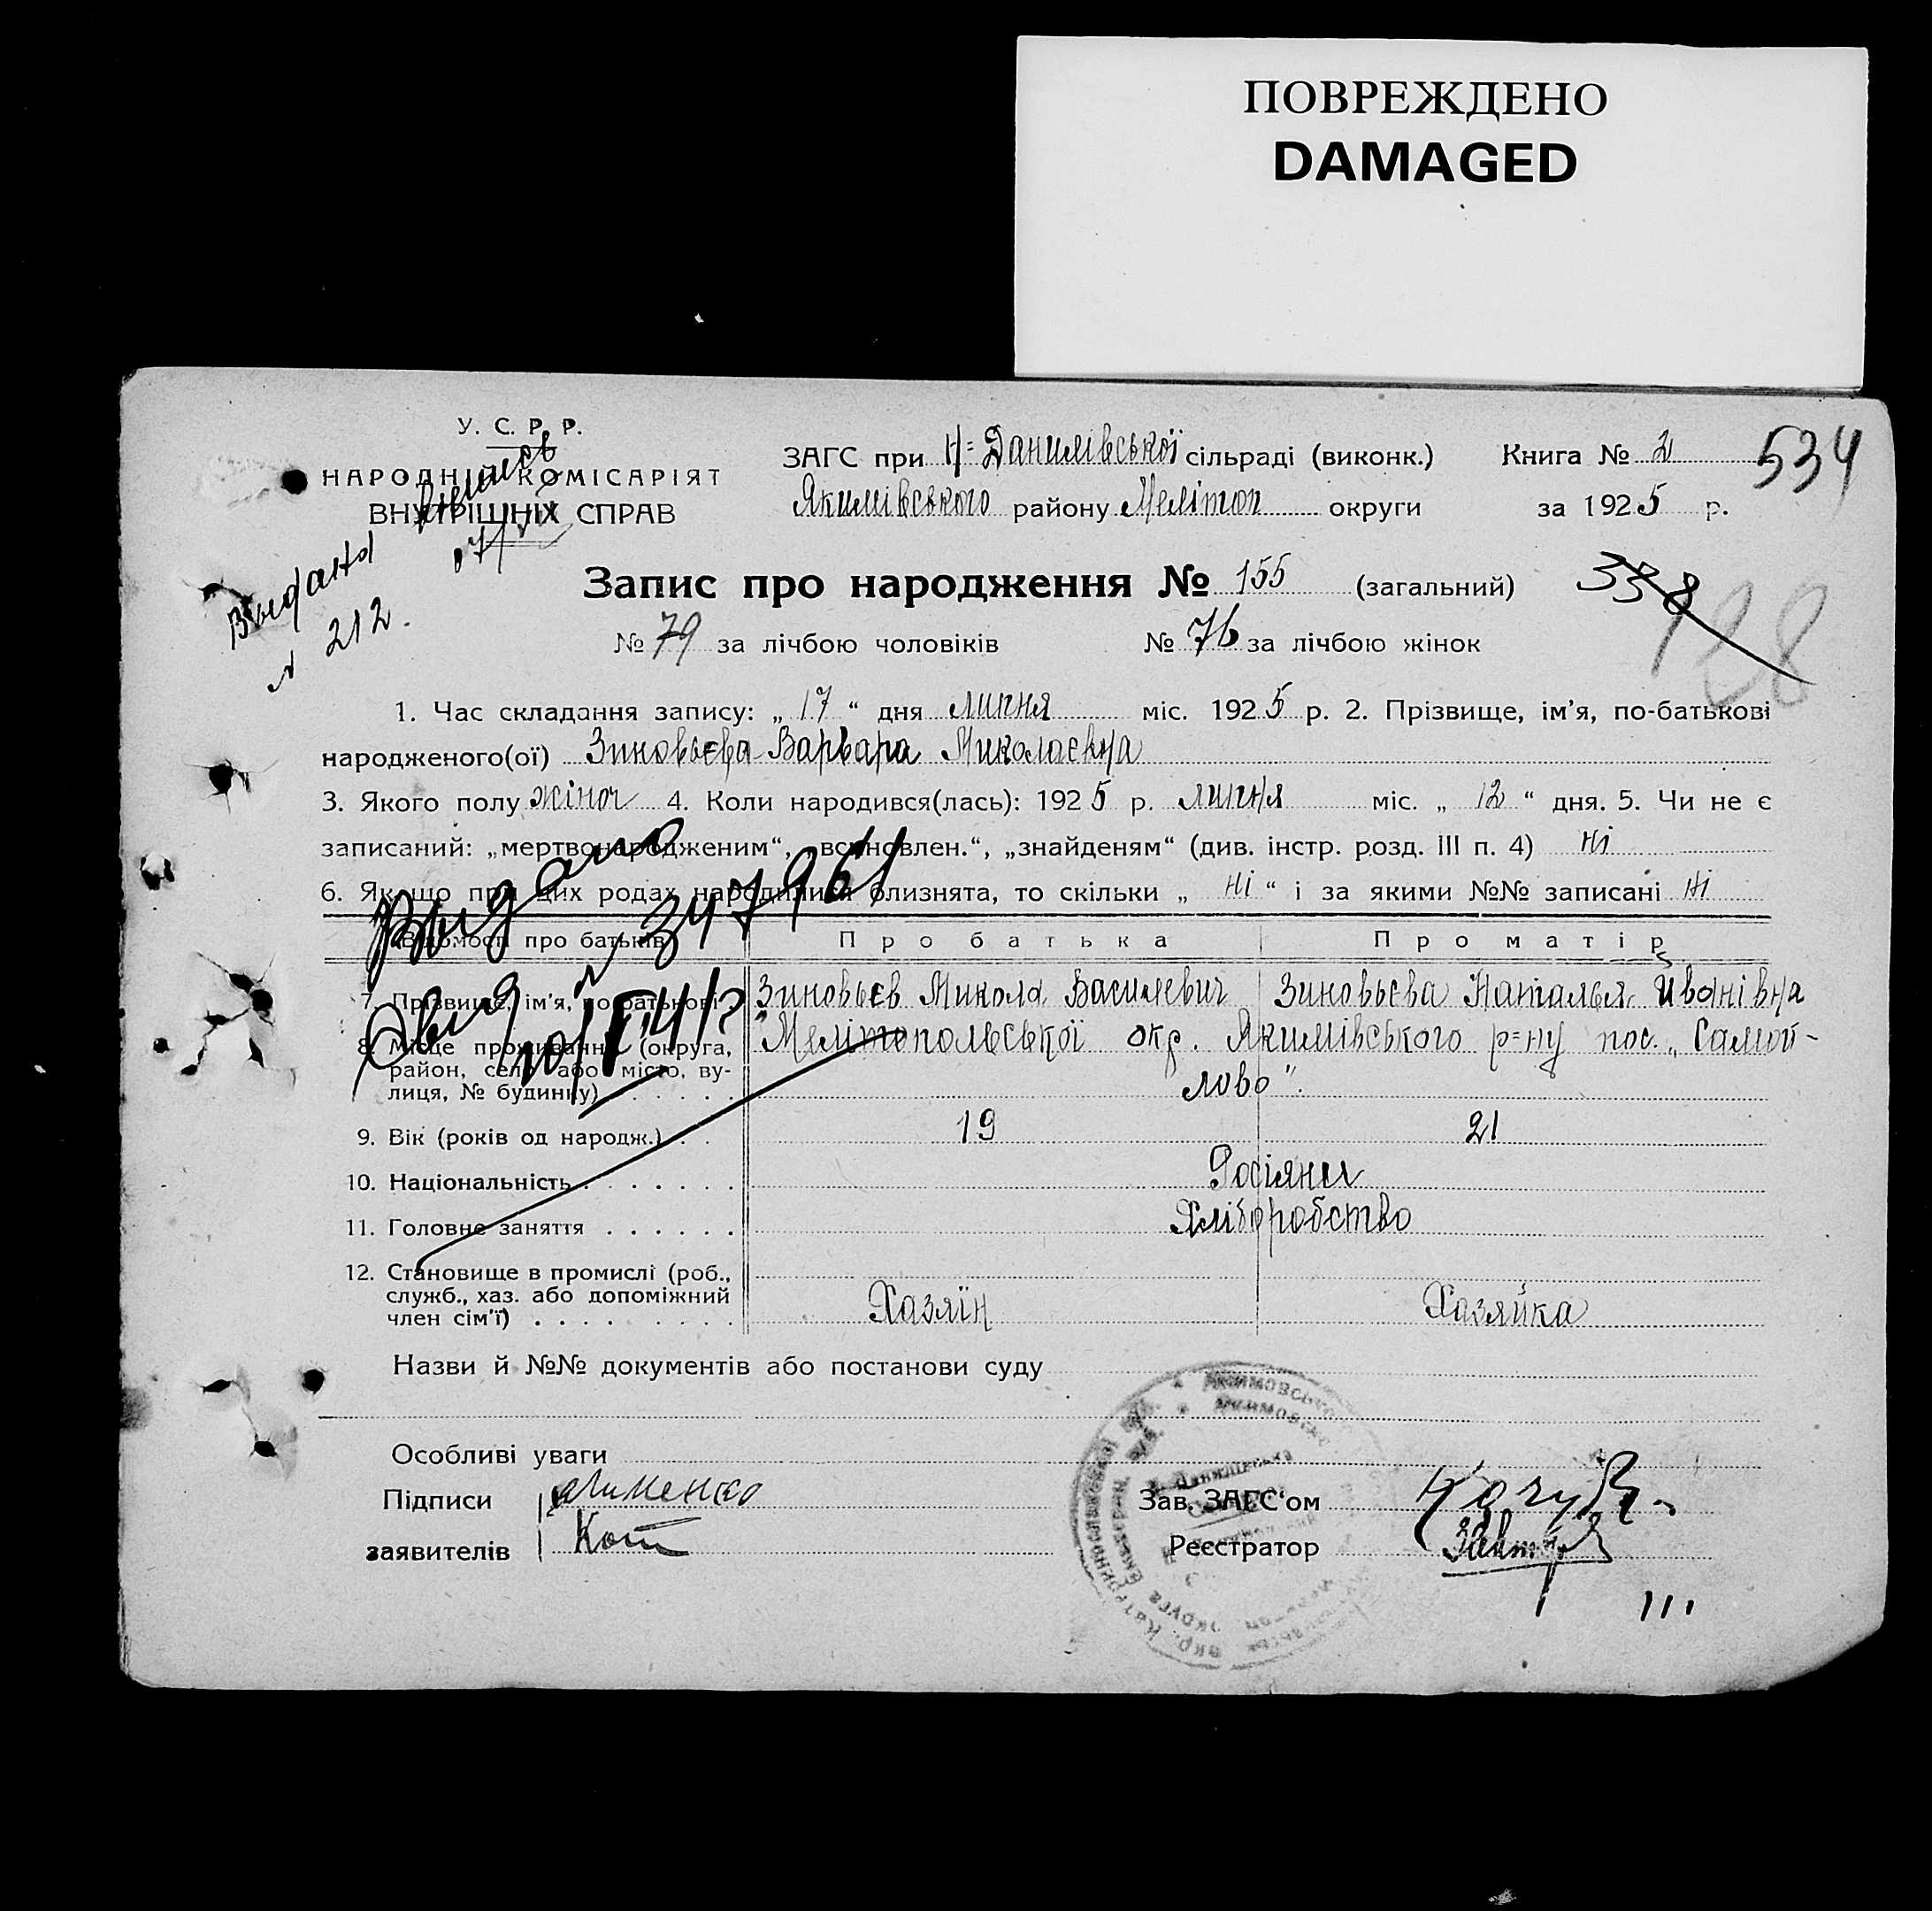 ПОВРЕЖДЕНО
DAMAGED
У. С. Р. Р.
НАРОДНІЙ КОМІСАРІЯТ
ВНУТРІШНІХ СПРАВ
ЗАГС при Н=Данилівської сільраді (виконк.) Книга № 2
534
Якимівського району Меліто́п округи за 1925 р.
Выдана
№ 212.
Запис про народження № 155 (загальний)
338
128
№ 79 за лічбою чоловіків № 76 за лічбою жінок
1. Час складання запису: „ 17 “ дня липня міс. 1925 р. 2. Прізвище, ім’я, по-батькові
народженого(ої) Зиновьєва Варвара Миколаєвна
3. Якого полу жіноч 4. Коли народився(лась): 1925 р. липня міс. „ 12 “ дня. 5. Чи не є
записаний: „мертвонародженим“, „всиновлен.“, „знайденям“ (див. інстр. розд. III п. 4) ні
6. Якщо при цих родах народилися близнята, то скільки „ ні “ і за якими №№ записані ні
Выдано
Відомості про батьків Про батька Про матір
7. Прізвище, ім’я, по-батькові Зиновьєв Микола Василевич Зиновьєва Наталья Иванівна
8. Місце проживання (округа, район, село або місто, вулиця, № будинку) Мелітопольської окр. Якимівського р=ну пос. „Самой-
лово“.
9. Вік (років од народж.) 19 21
10. Національність Росіяни
11. Головне заняття Хліборобство
12. Становище в промислі (роб.,
служб., хаз. або допоміжний
член сім’ї) Хазяїн Хазяйка
Назви й №№ документів або постанови суду
Особливі уваги
Підписи
Зав. ЗАГС‘ом
заявителів Кот
Реєстратор